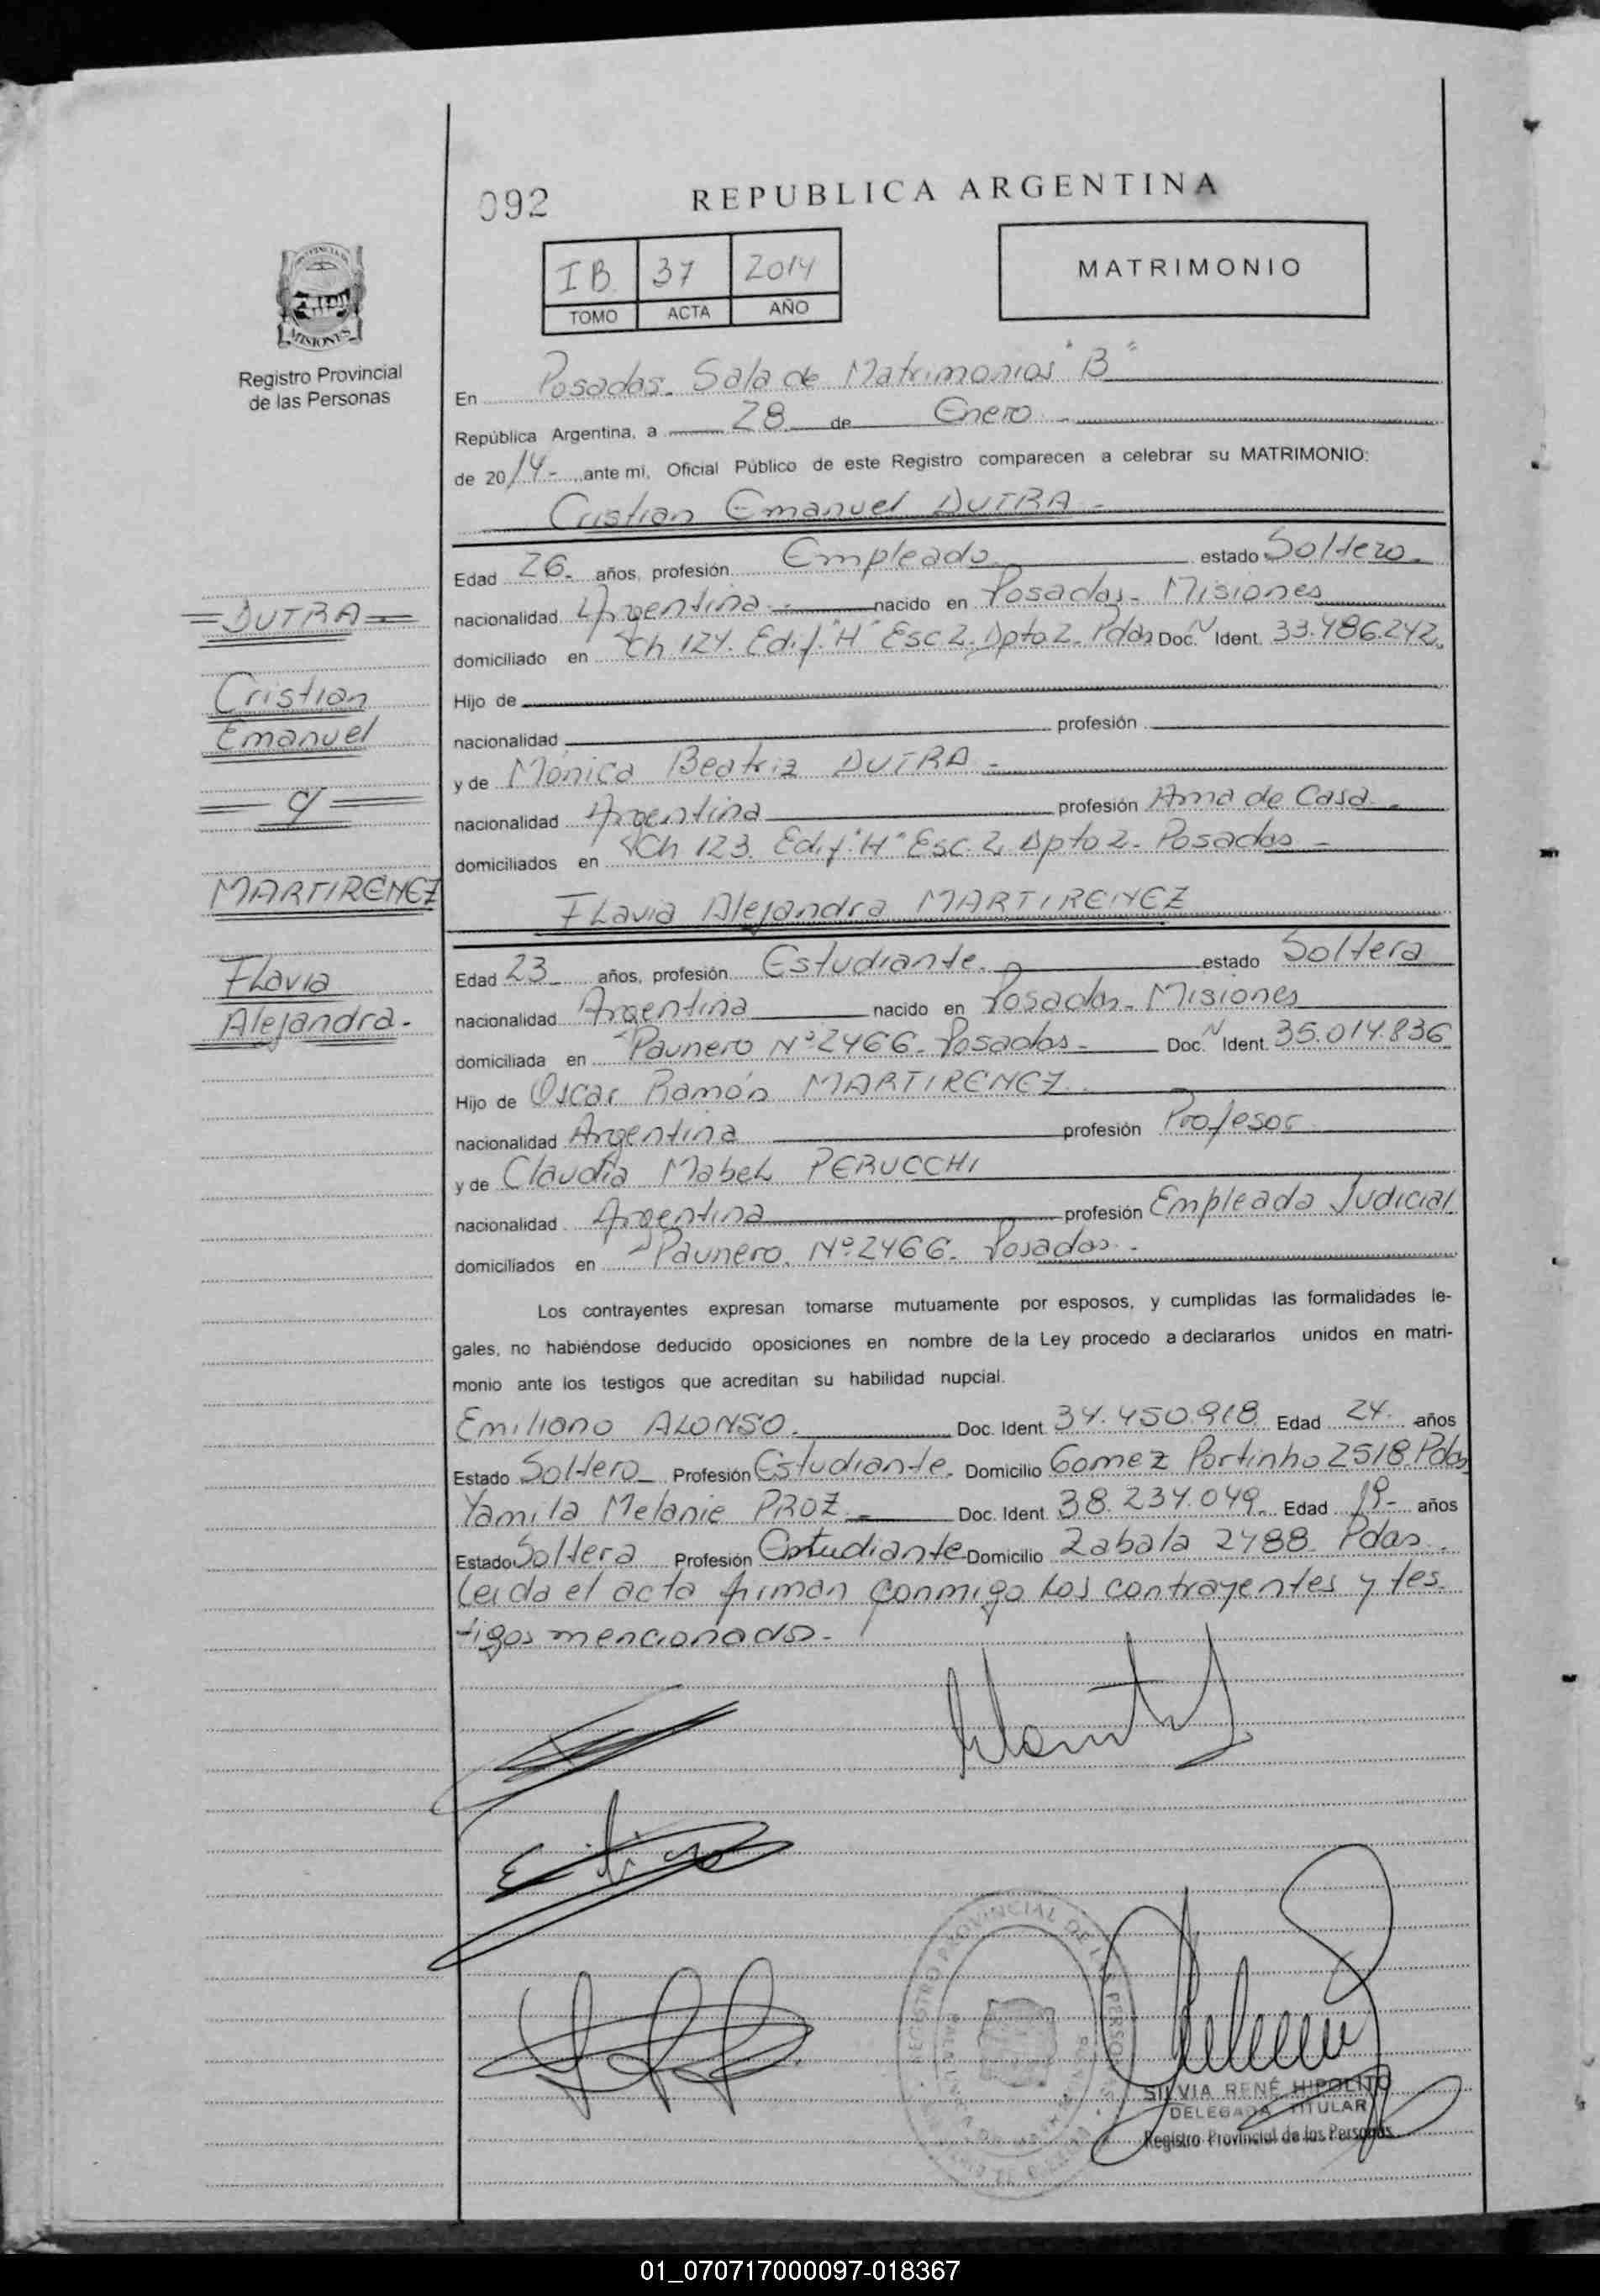 092
REPUBLICA ARGENTINA
PROVINCIA DE
MISIONES
Registro Provincial
de las Personas
IB 37 2014
TOMO ACTA AÑO
MATRIMONIO
En Posadas - Sala de Matrimonios "B"
República Argentina, a 28 de Enero -
de 2014 - ante mi, Oficial Público de este Registro comparecen a celebrar su MATRIMONIO:
Cristian Emanuel DUTRA -
Edad 26 - años, profesión Empleado estado Soltero -
nacionalidad Argentina - nacido en Posadas - Misiones
domiciliado en Ch 124. Edif. "H" Esc 2. Dpto 2. Pdas Doc. N Ident. 33.486.242.
Hijo de
nacionalidad profesión
y de Mónica Beatriz DUTRA -
nacionalidad Argentina profesión Ama de Casa -
domiciliados en Ch 123. Edif. "H" Esc. 2. Dpto 2 - Posadas -
Flavia Alejandra MARTIRENEZ
Edad 23 años, profesión Estudiante. estado Soltera
nacionalidad Argentina nacido en Posadas - Misiones
domiciliada en Paunero Nº 2466 - Posadas - Doc. N Ident. 35.014.836
Hijo de Oscar Ramón MARTIRENEZ -
nacionalidad Argentina profesión Profesor
y de Claudia Mabel PERUCCHI
nacionalidad Argentina profesión Empleada Judicial
domiciliados en Paunero. Nº 2466 - Posadas -
Los contrayentes expresan tomarse mutuamente por esposos, y cumplidas las formalidades le-
gales, no habiéndose deducido oposiciones en nombre de la Ley procedo a declararlos unidos en matri-
monio ante los testigos que acreditan su habilidad nupcial.
Emiliano ALONSO. Doc. Ident. 34.450.918 Edad 24. años
Estado Soltero Profesión Estudiante. Domicilio Gomez Portinho 2518 Pdas
Yamila Melanie PROZ. Doc. Ident. 38.234.049 - Edad 19 - años
Estado Soltera Profesión Estudiante Domicilio Zabala 2488 - Pdas.
Leida el acta firman conmigo los contrayentes y tes-
tigos mencionados -
= DUTRA =
Cristian
Emanuel
= y =
MARTIRENEZ
Flavia
Alejandra -
REGISTRO PROVINCIAL DE LAS PERSONAS
SILVIA RENÉ HIPOLITO
DELEGADA TITULAR
Registro Provincial de las Personas
01_070717000097-018367